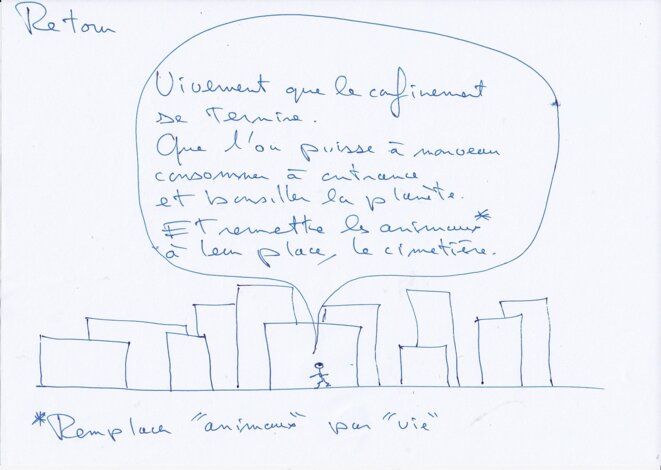 Retour
Vivement que le confinement
se termine.
Que l'on puisse à nouveau
consommer à outrance
et bousiller la planète.
Et remettre les animaux*
à leur place, le cimetière.
*Remplacer "animaux" par "vie"